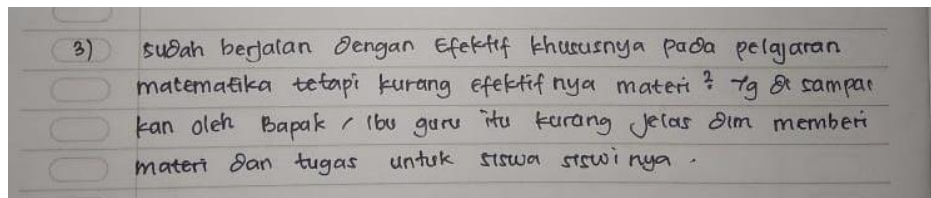 3) sudah berjalan dengan Efektif khususnya pada pelajaran
matematika tetapi kurang efektif nya materi² yg di sampai
kan oleh Bapak / Ibu guru itu kurang jelas dlm memberi
materi dan tugas untuk siswa siswi nya .